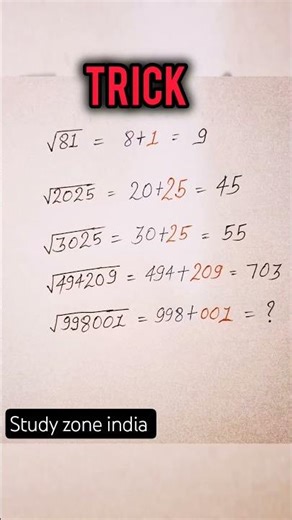 TRICK
√81 = 8+1 = 9
√2025 = 20+25 = 45
√3025 = 30+25 = 55
√494209 = 494+209 = 703
√998001 = 998+001 = ?
Study zone india